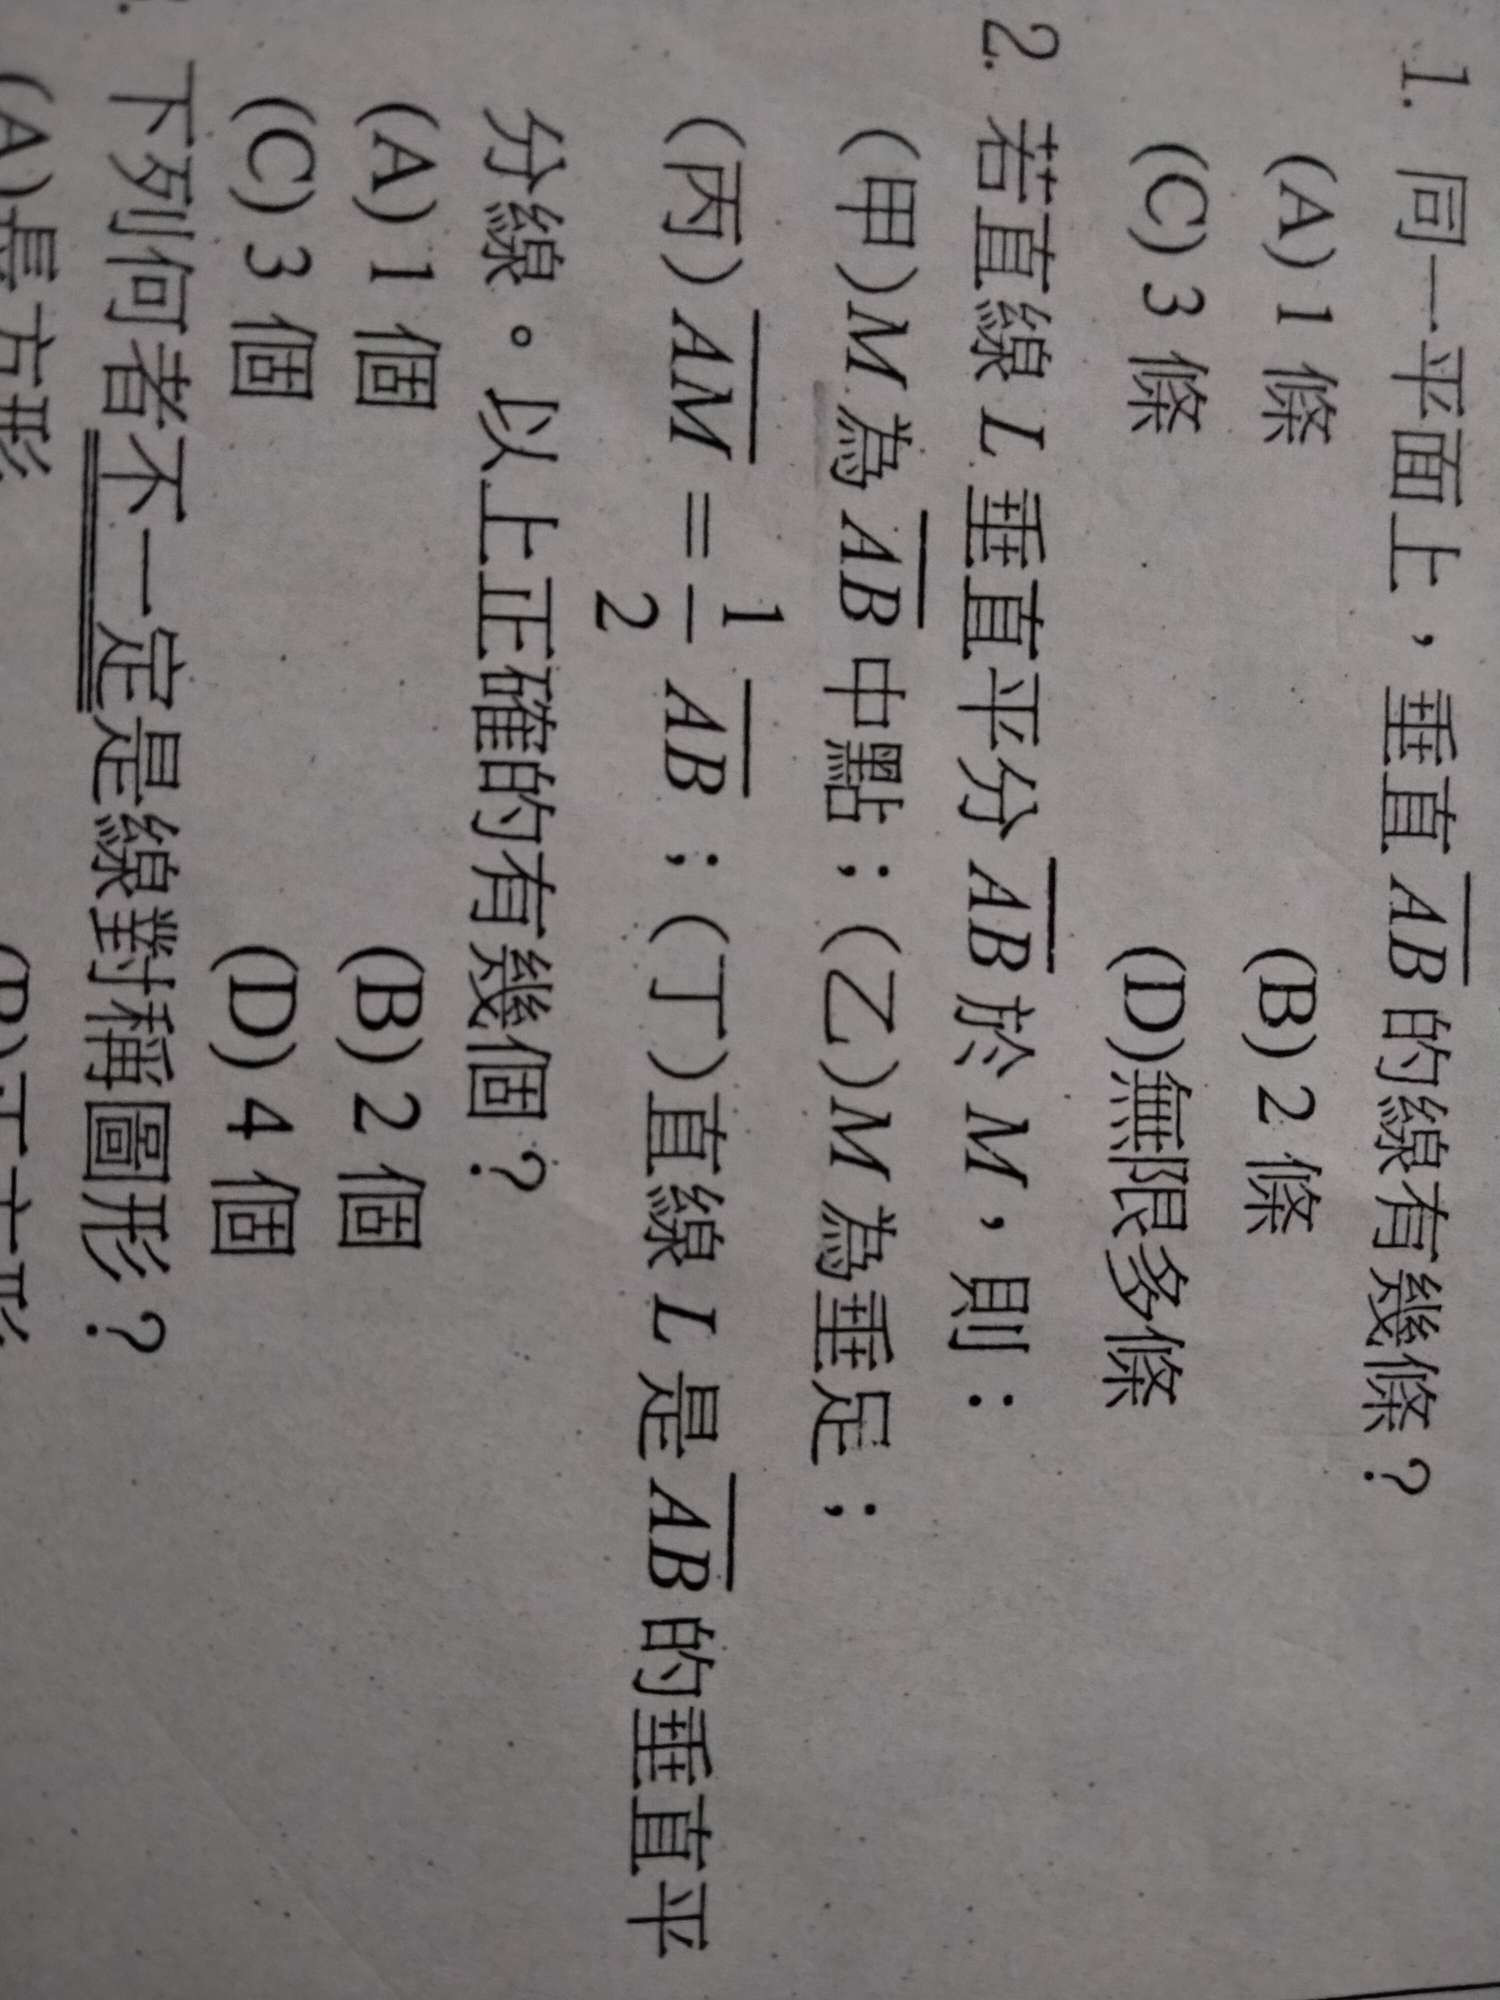 1. 同一平面上，垂直 AB 的線有幾條？
(A) 1 條 (B) 2 條
(C) 3 條 (D)無限多條
2. 若直線 L 垂直平分 AB 於 M，則：
(甲)M 為 AB 中點；(乙)M 為垂足；
(丙) AM = 1/2 AB；(丁)直線 L 是 AB 的垂直平
分線。以上正確的有幾個？
(A) 1 個 (B) 2 個
(C) 3 個 (D) 4 個
下列何者不一定是線對稱圖形？
(A)長方形 (B)正方形